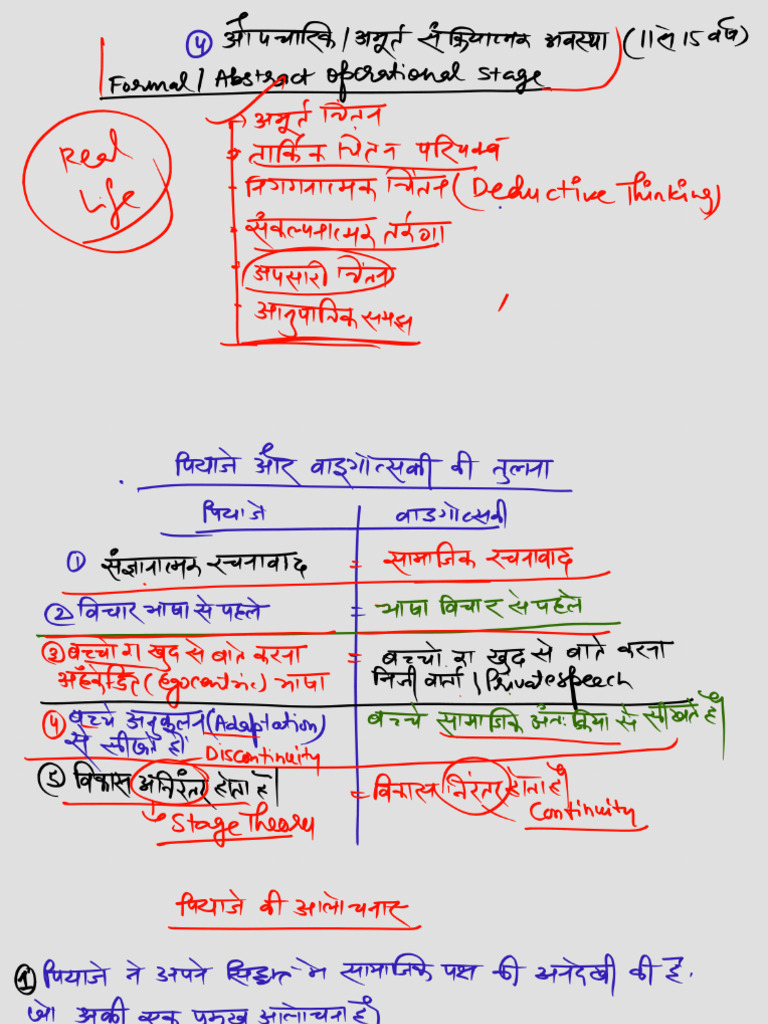 ④ औपचारिक / अमूर्त संक्रियात्मक अवस्था (11 से 15 वर्ष)
Formal / Abstract operational stage
Real Life
→ अमूर्त चिंतन
→ तार्किक चिंतन परिपक्व
- निगमनात्मक चिंतन (Deductive Thinking)
- संकल्पनात्मक तर्कणा
- अपसारी चिंतन
- आनुपातिक समझ
पियाजे और वाइगोत्सकी की तुलना
पियाजे वाइगोत्सकी
① संज्ञानात्मक रचनावाद = सामाजिक रचनावाद
② विचार भाषा से पहले = भाषा विचार से पहले
③ बच्चो का खुद से बाते करना = बच्चो का खुद से बाते करना
अहंकेंद्रित (Egocentric) भाषा निजी वार्ता / Private speech
④ बच्चे अनुकूलन (Adaptation) बच्चे सामाजिक अंतःक्रिया से सीखते है।
से सीखते है। Discontinuity
⑤ विकास अनिरंतर होता है। = विकास निरंतर होता है।
Stage Theory Continuity
पियाजे की आलोचनाए
① पियाजे ने अपने सिद्धांत मे सामाजिक पक्ष की अनदेखी की है.
जो उनकी एक प्रमुख आलोचना है।